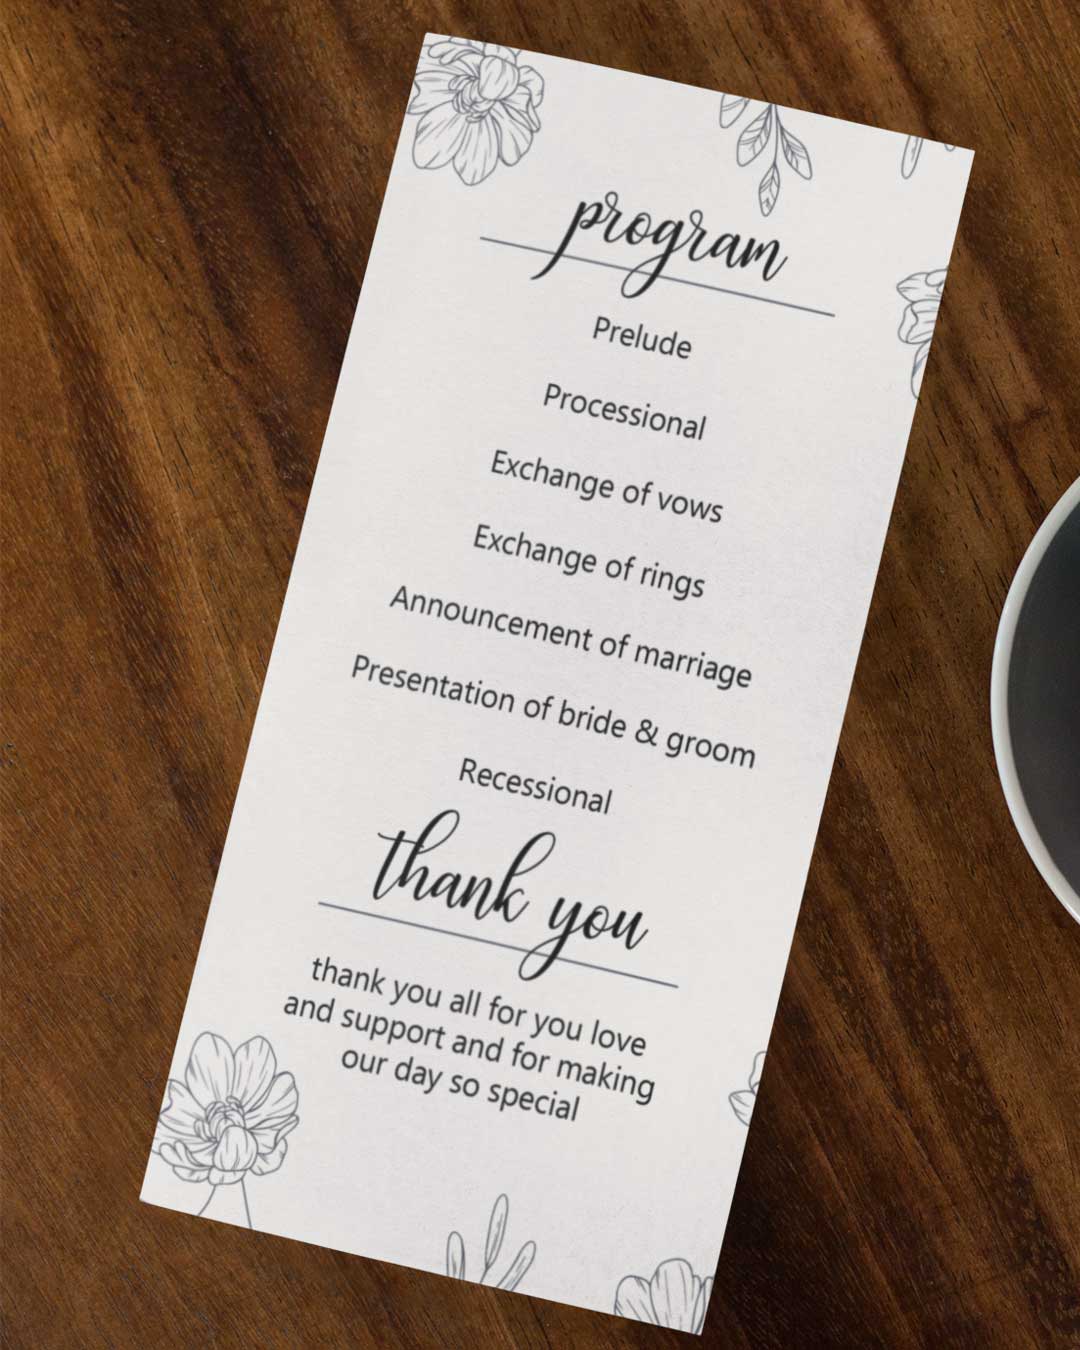 program
Prelude
Processional
Exchange of vows
Exchange of rings
Announcement of marriage
Presentation of bride & groom
Recessional
thank you
thank you all for you love
and support and for making
our day so special